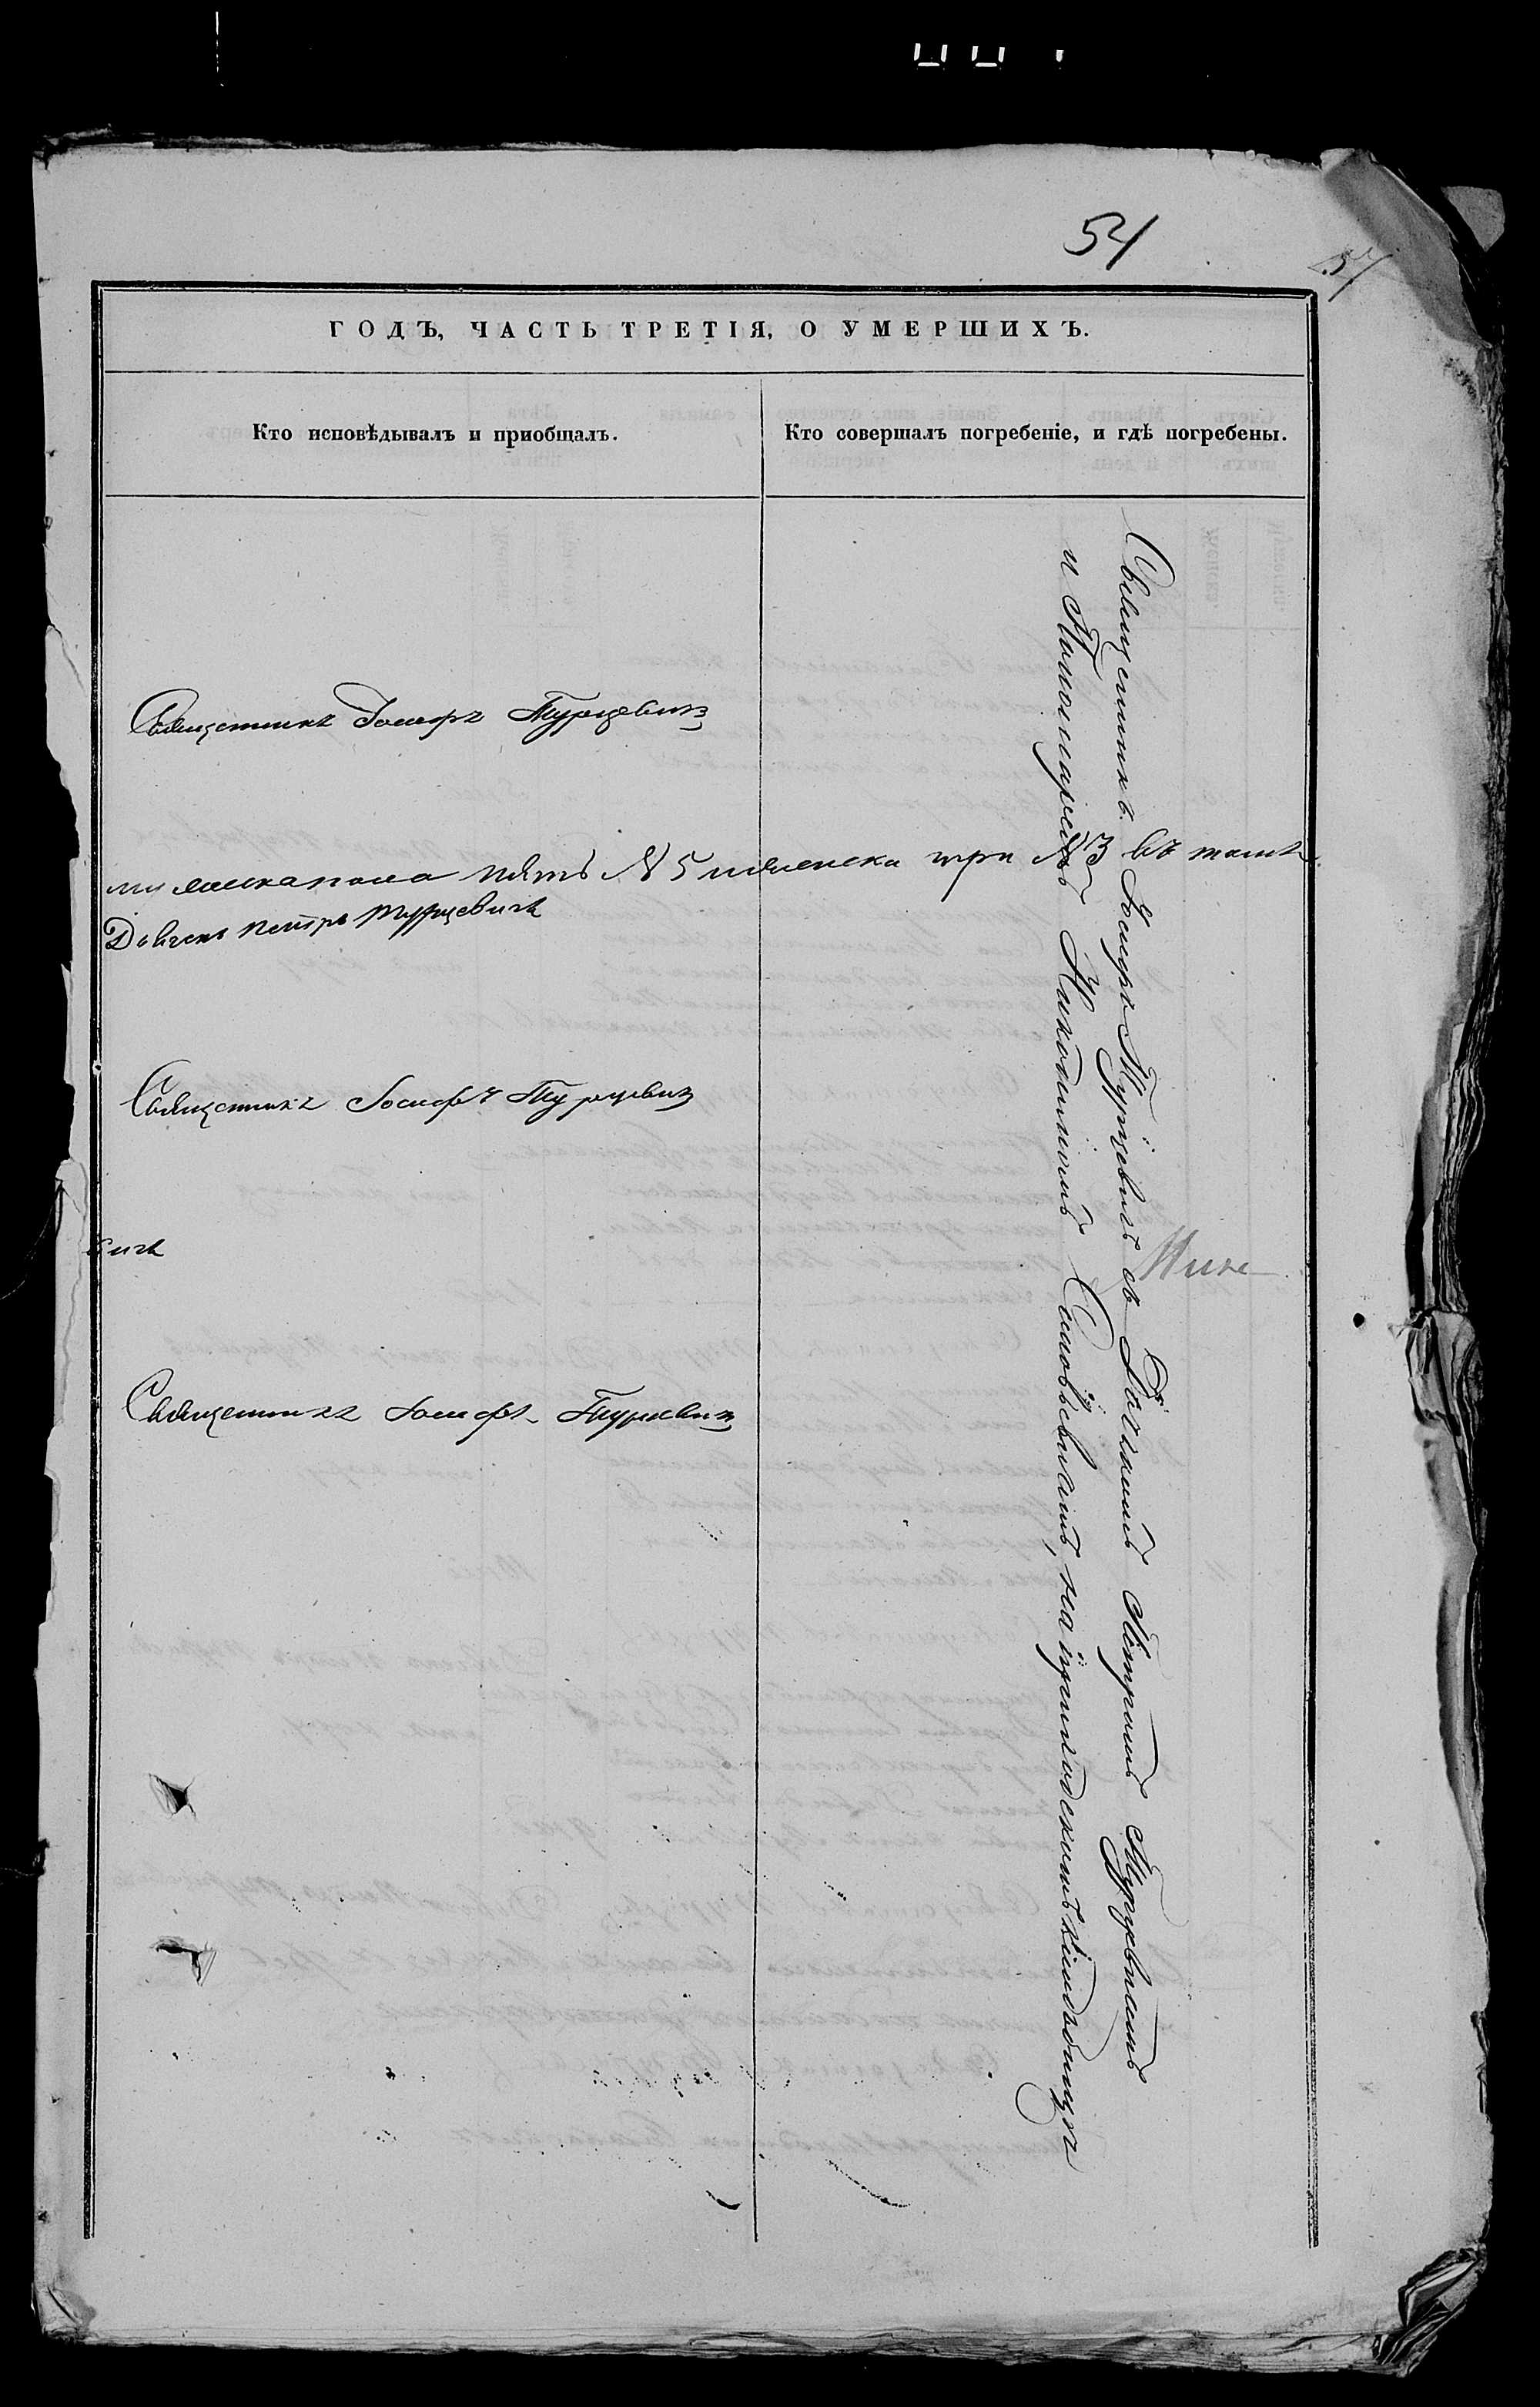 54
57
ГОДЪ, ЧАСТЬ ТРЕТІЯ, О УМЕРШИХЪ.
Кто исповѣдывалъ и приобщалъ.
Кто совершалъ погребеніе, и гдѣ погребены.
Священникъ Іосифъ Турцевичъ
пола пять № 5 женска три № 3 въ томъ
Дьячекъ Петръ Турцевичъ
Священникъ Іосифъ Турцевичъ
вичъ
Священникъ Іосифъ Турцевичъ
Священникъ Іосифъ Турцевичъ съ Дьячкомъ Петромъ Турцевичемъ
и Пономаремъ Никодимомъ на приходскомъ кладбищѣ